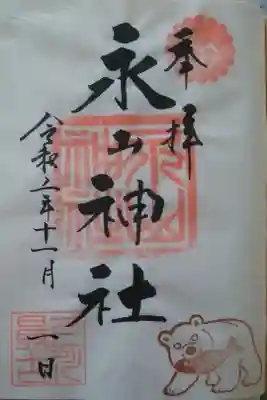 奉拝
永山神社
令和二年十一月一日